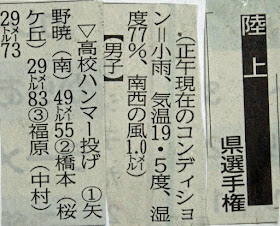 陸上
県選手権
(正午現在のコンディショ
ン=小雨、気温19・5度、湿
度77%、南西の風1.0メートル)
【男子】
▽高校ハンマー投げ ①矢
野暁(南)49メートル55②橋本(桜
ケ丘)29メートル83③福原(中村)
29メートル73